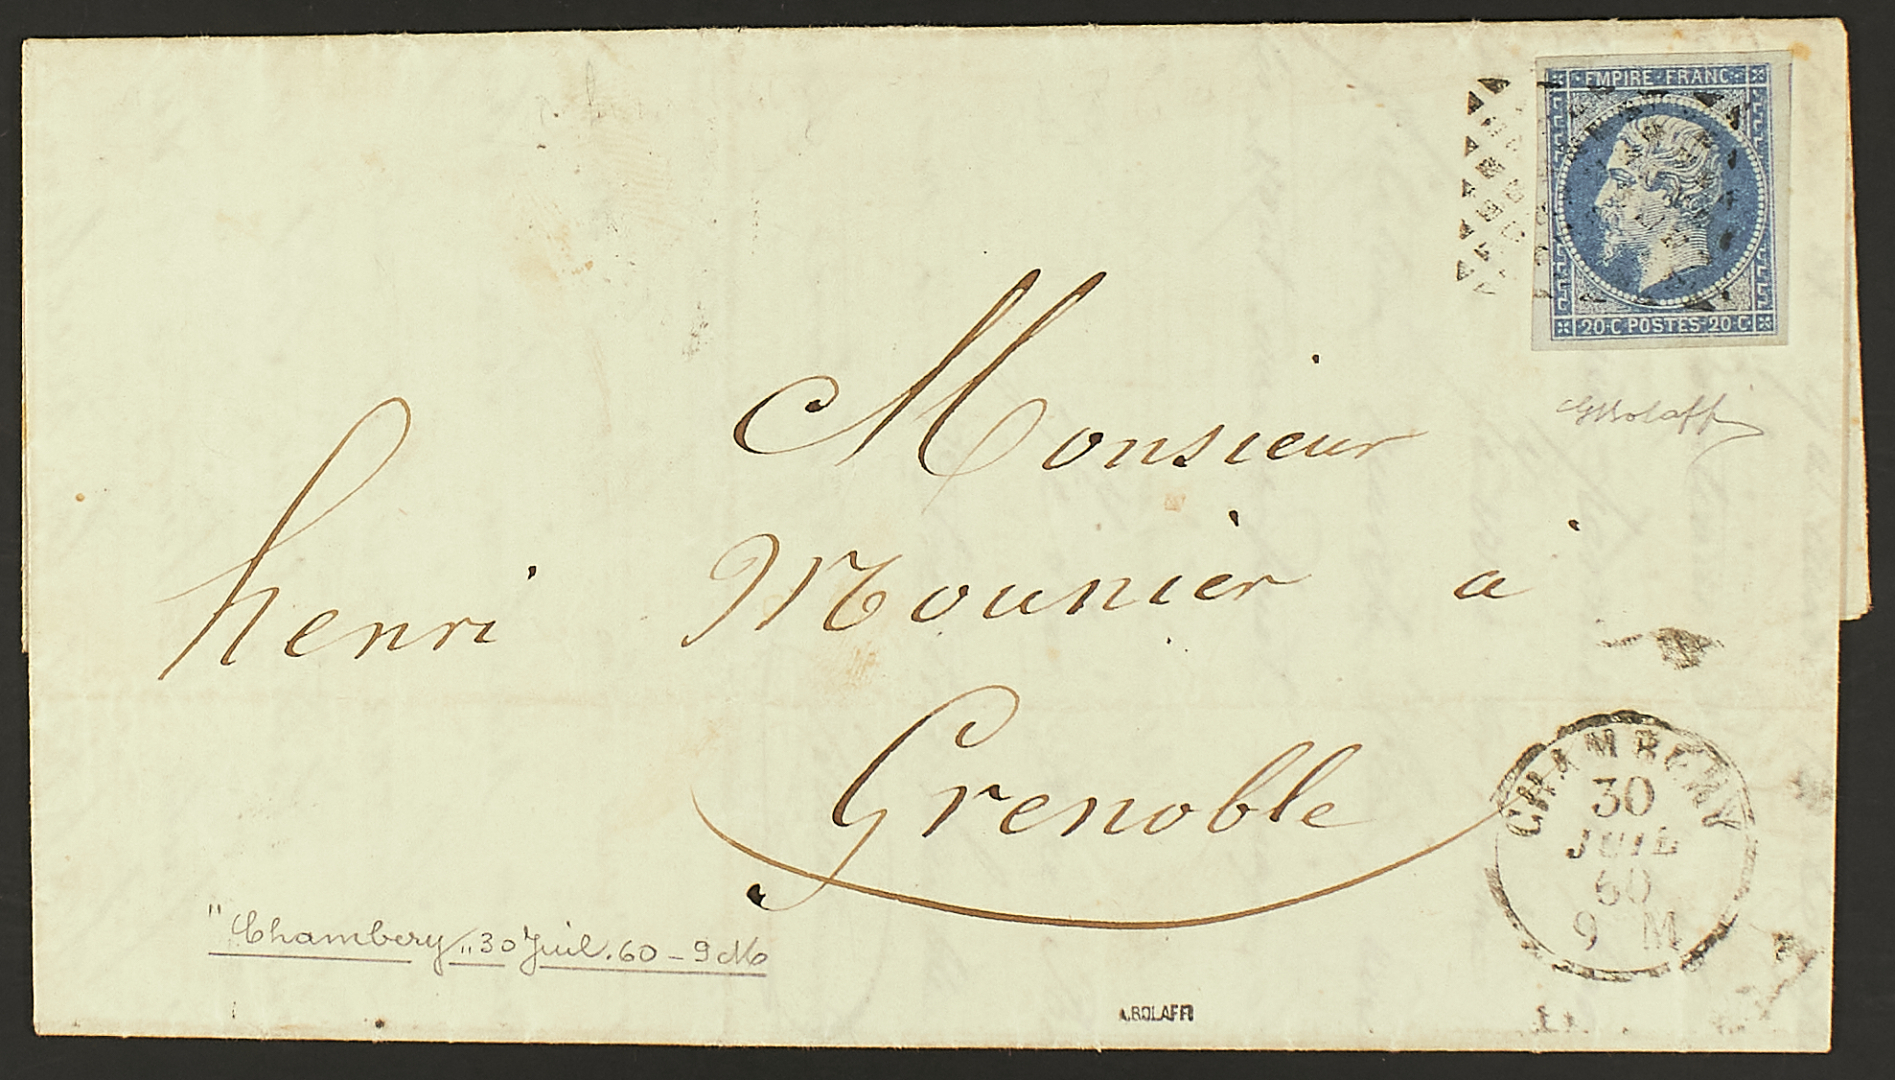 EMPIRE FRANC
20·C·POSTES·20·C
GBolaffi
Monsieur
henri Mounier à
Grenoble
CHAMBERY
30
JUIL
60
9 M
"Chambery„ 30 Juil. 60 - 9 M
A.BOLAFFI